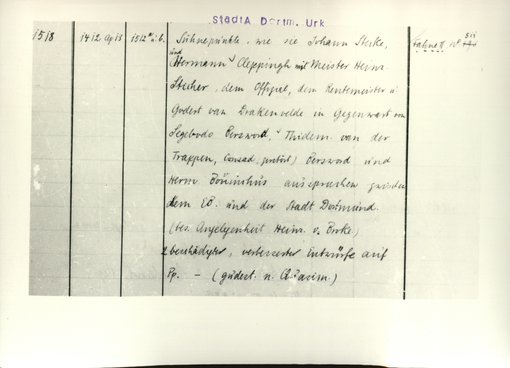 StadtA Dortm. Urk
1518 1412 Ap 13 1512 a u. b. Sühnepunkte, wie sie Johann Sterke, Fahne II n° 511
und
Hermann Cleppingh mit Meister Heinr.
Stecher, dem Offizial, dem Rentemeister u.
Godert van Drakenvelde in Gegenwart von
Segebodo Bersword, Thidem. van der
Trappen, Conrad Bersword und
Herm aussprachen zwischen
dem EB. und der Stadt Dortmund.
(bes. Angelegenheit Heinr. v. )
2 beschädigte, verbesserte Entwürfe auf
Pp. — (gedert. n. )